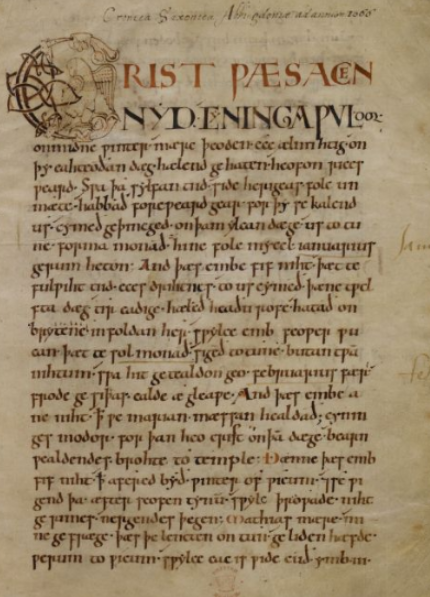 Cronica Saxonica Abbingdoniæ ad annum 1066
CRIST ǷÆS ACEN
NYD. CYNINGA ǷULDOR
on midne ƿinter mære þeoden ece ælmihtig on
þy eahteoðan dæg hælend gehaten heofon rices
ƿeard. Sƿa þa sylfan tiid side herigeas folc un
mæte habbað foreƿeard gear for þy se kalend
us cymeð geþincged on þam ylcan dæge us to tu
ne forma monað hine folc mycel ianuarius
gerum heton. And þæs embe fif niht þæt te
fulƿiht tiid eces drihtnes to us cymeð þæne tƿel
fta dæg tir eadige hæleð heaðu rofe hatað on
brytene in foldan her. sƿylce emb feoƿer ƿu
can þæt te sol monað sigeð to tune butan tƿā
nihtum sƿa hit getealdon geo februarius fær
frode gesiþas ealde ægleaƿe. And þæs embe a
ne niht ꝥ ƿe marian mæssan healdað cynin
ges modor for þan heo crist on þā dæge bearn
ƿealdendes brohte to temple. Ðænne þæs emb
fif niht ꝥ afered byð ƿinter of ƿicum se ƿi
gend þa æfter seofentynū sƿylt þroƿade niht
gerimes nergendes þegen. Mathias mære mi
ne gefræge þæs þe lencten on tun geliden hæfde
ƿerum to ƿicum sƿylce eac is ƿide cuð ymb iii